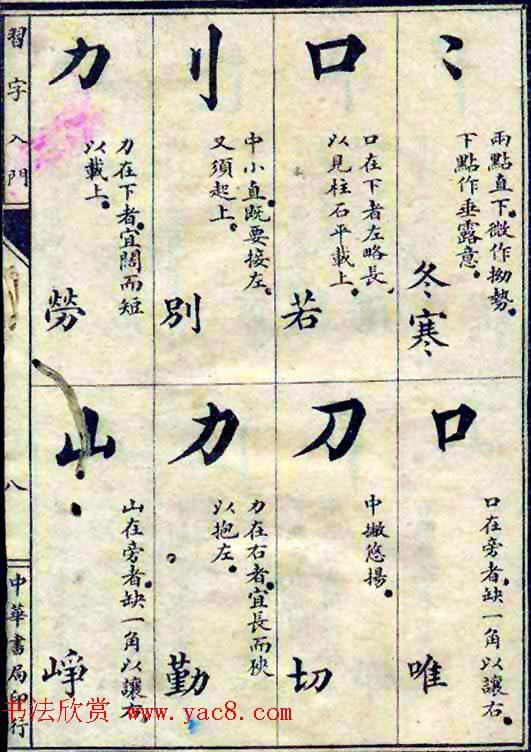 冫
兩點直下。微作拗勢。
下點作垂露意。
冬寒
口
口在下者左略長。
以見柱石平載上。
若
刂
中小直。既要接左。
又須起上。
別
力
力在下者。宜闊而短
以載上。
勞
口
口在旁者。缺一角以讓右。
唯
刀
中撇悠揚。
切
力
力在右者。宜長而硤
以抱左。
勤
山
山在旁者。缺一角以讓右。
崢
習字入門
八
中華書局印行
书法欣赏 www.yac8.com